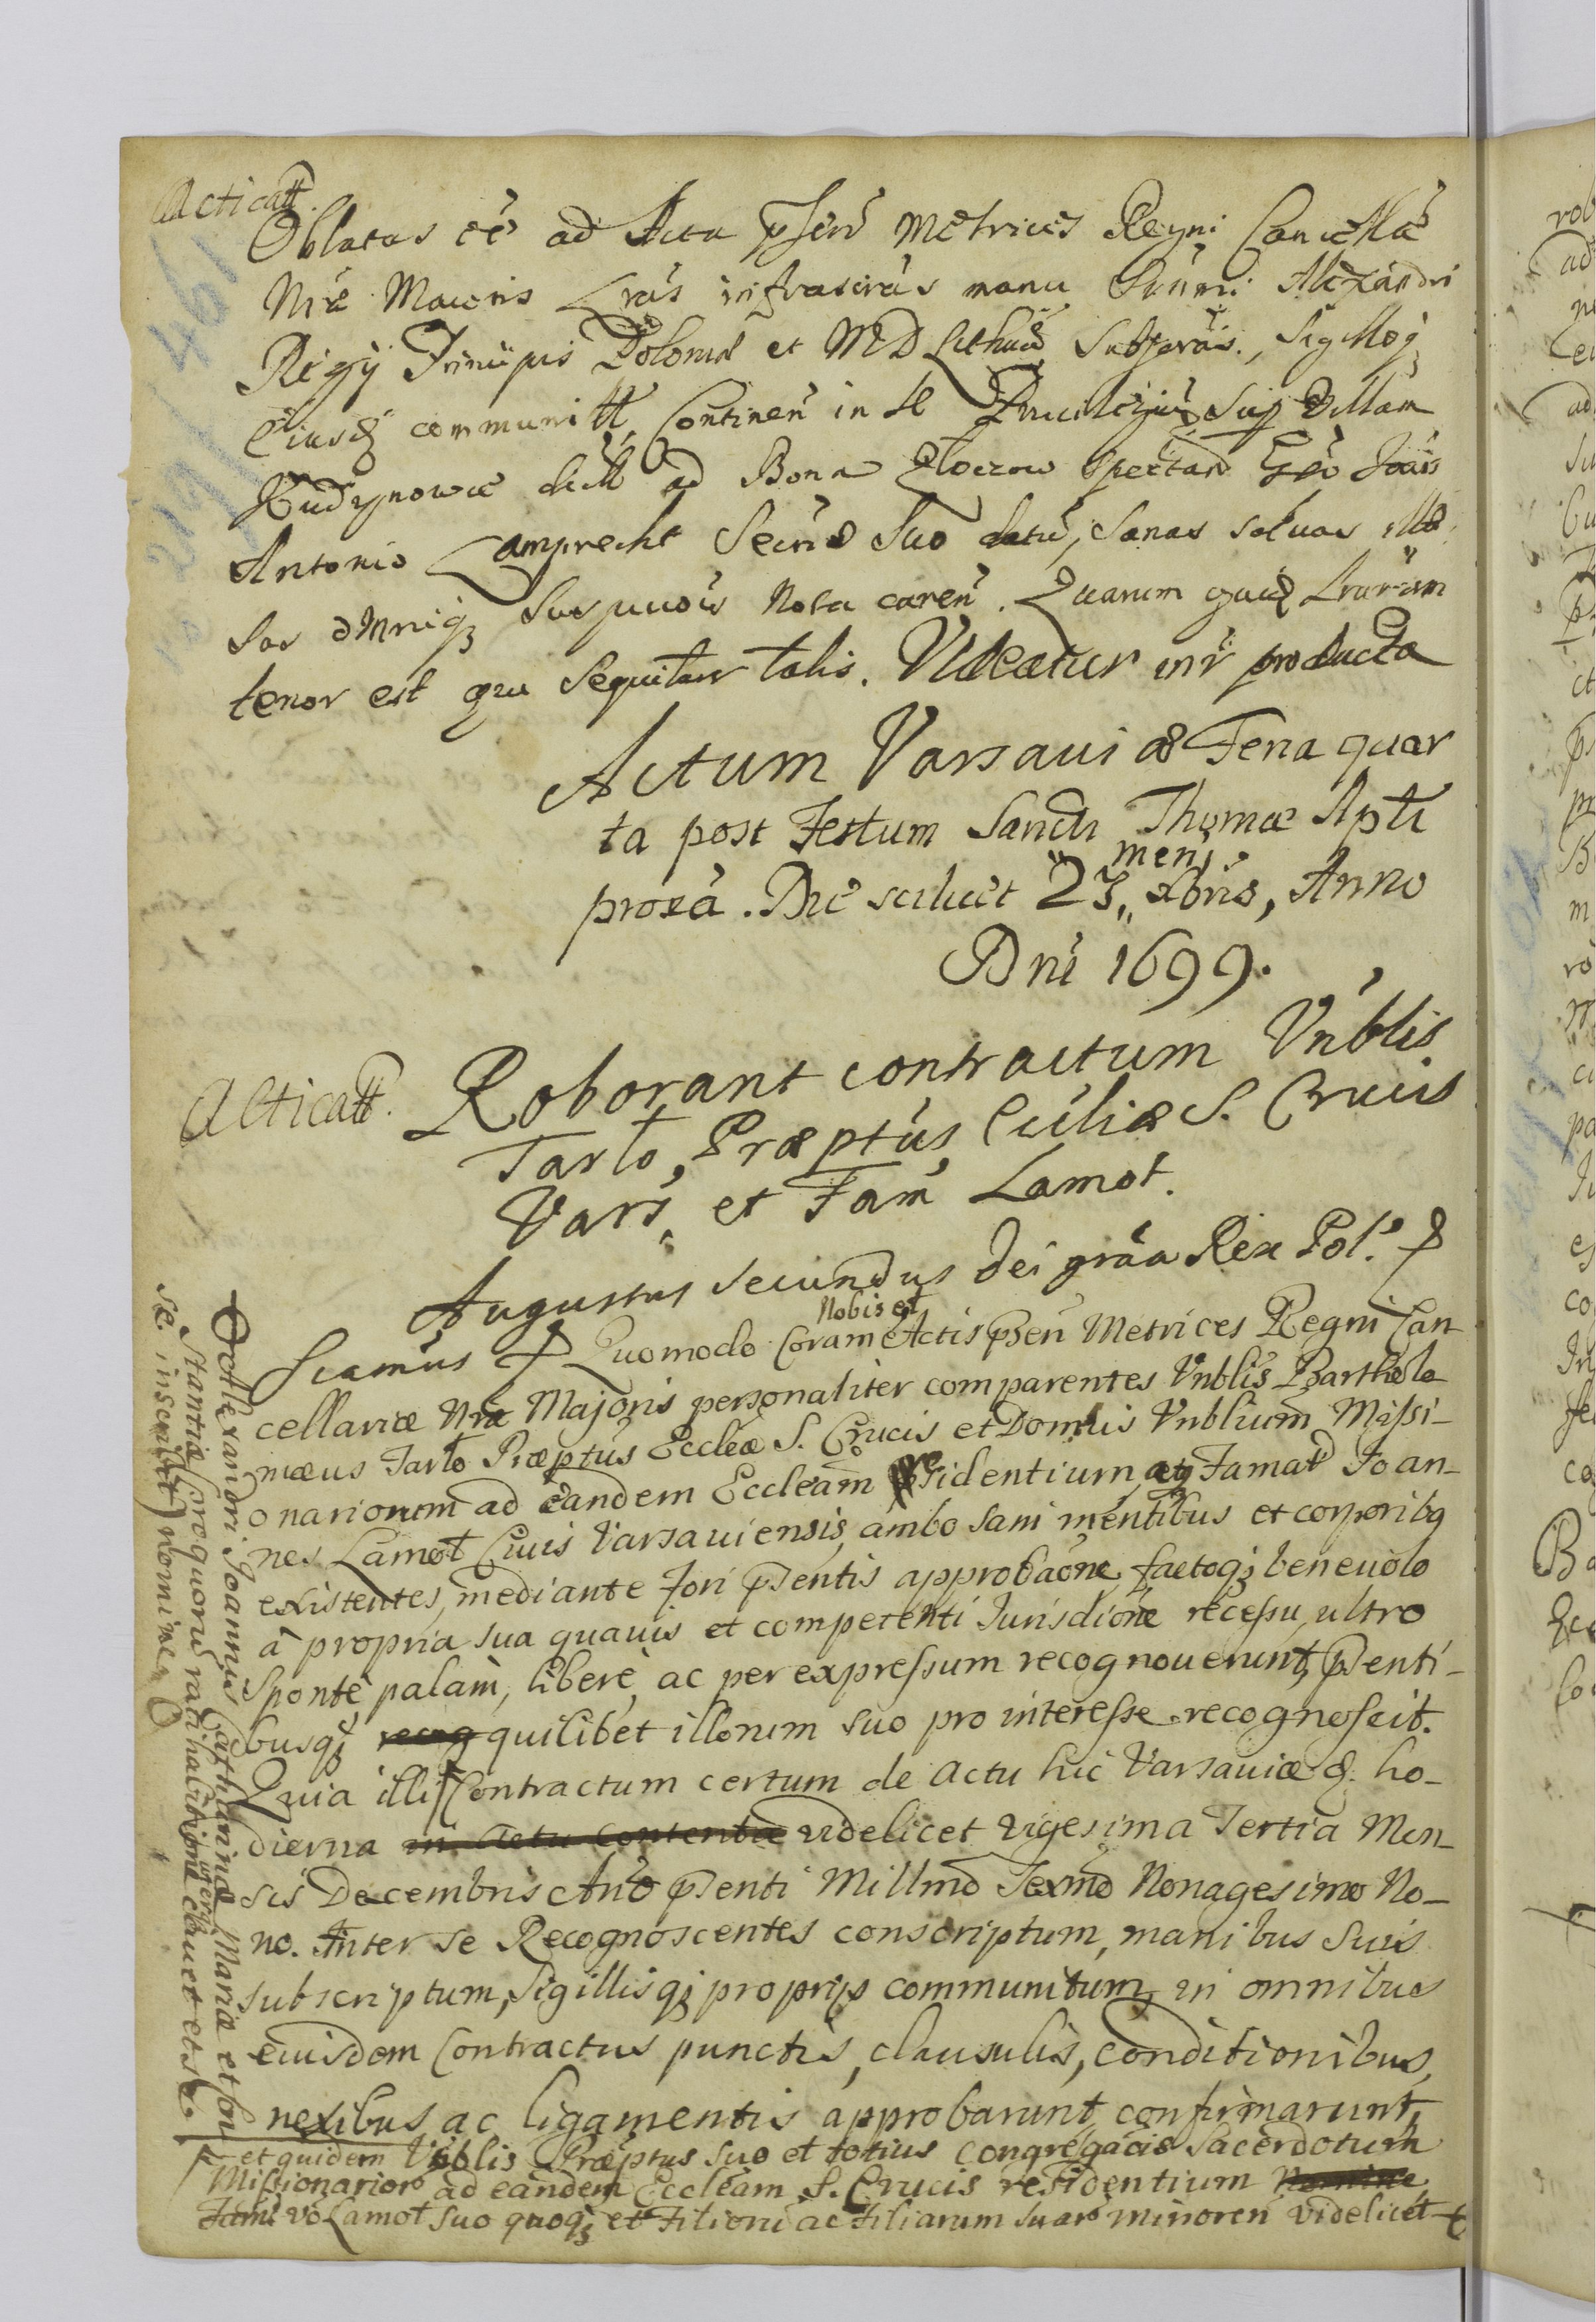 Acticatt.
Oblatas eé ad Acta pñtiũ Metrices Regni Cancellã
Nrã Maioris Lrãs infrascrãs manu Srñmi Alexandri
Regij Principis Poloniæ et MD Lithuæ subscrãs, Sigilloq;
Eiusd. communitt, Continen̄ in se Priuilegiũ sup Villam
Rudynowce dictt ad Bona Złoczow spectan Gñso Joãis
Antonio Lamprecht Secrio Suo datũ, Sanas saluas illæ
sas omniq; suspicõis Nota caren̄. Quarum quid Lrarum
tenor est qui Sequitur talis. Videatur inr producta
Actum Varsaviæ Feria quar
ta post Festum Sancti Thomæ Apłi
proxã. Die scilicet 23 mens xbris, Anno
Dni 1699.
Acticatt. Roborant contractum Vnblis
Tarło, Præptus Ecclliæ S. Crucis
Vars. et Fam̃ Lamot.
Augustus Secundus Dei grãa Rex Pol.
Scamus Quomodo Coram Nobis et Actis pñsen Metrices Regni Can
cellariæ Nræ Majoris personaliter comparentes Vnblis Bartholo
mæus Tarło Præptus Eccleæ S. Crucis et Domus Vnblium Missi-
onariorum ad eandem Eccleam residentium, atq Famat Joan-
nes Lamot Ciuis Varsauiensis, ambo sani mentibus et corporibq
existentes, mediante Fori pñsentis approbaõne, factoq; beneuolo
â propria sua quauis et competenti Jurisdiõne recessu, ultro
Sponte, palàm, liberè, ac per expressum recognouerunt, pñsenti-
busq; recog quilibet illorum suo pro interesse recognoscit.
Quia illi Contractum certum de actu hic Varsauiæ d. ho-
dierna in Actu Contentiæ videlicet vigesima Tertia Men-
sis Decembris Anõ pñsenti Millmo Sexmo Nonagesimo No-
no. Inter se Recognoscentes conscriptum, manibus suis
subscriptum, Sigillisq; proprijs communitum, in omnibus
eiusdem Contractus punctis, clausulis, conditionibus,
nexibus ac ligamentis approbarunt, confirmarunt,
et quidem Vnblis Præptus suo et totius Congregaõis Sacerdotum
Missionarior̃ ad eandem Eccleam S. Crucis residentium Nomine
Fam̃ võ Lamot suo quoq; et Filiorũ ac Filiarum suarũ minoren̄ videlicet
Alexandri Joannis Catharinæ Mariæ et Con
stantiæ (pro quorũ ratihabitione cauet et se
se inscribit) nomine